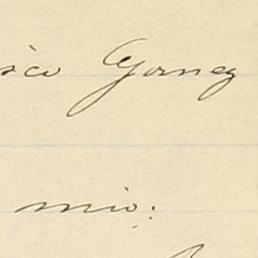 sco Gomez
mio: